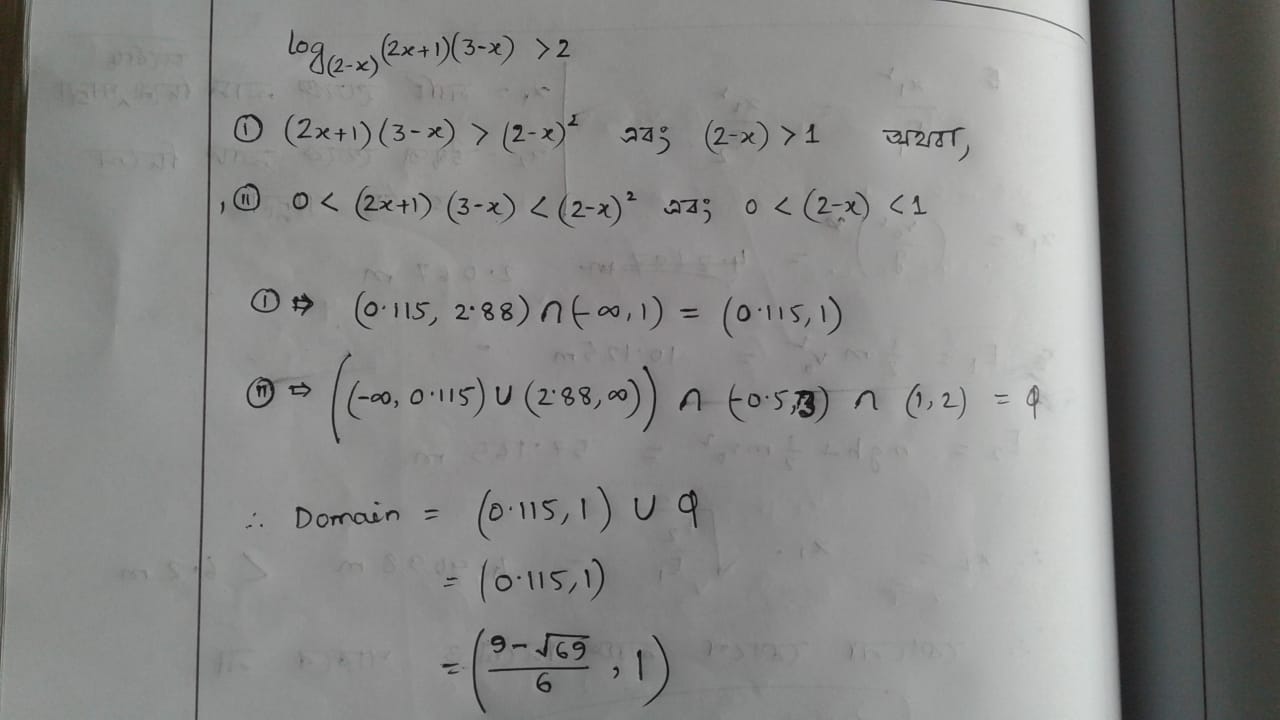 log₍₂₋ₓ₎(2x+1)(3-x) >2
Ⓘ (2x+1)(3-x) > (2-x)² এবং (2-x) >1 অথবা,
, ⓘⓘ 0 < (2x+1) (3-x) < (2-x)² এবং 0 < (2-x) <1
Ⓘ ⇒ (0.115, 2.88) ∩ (-∞, 1) = (0.115, 1)
ⓘⓘ ⇒ ((-∞, 0.115) ∪ (2.88, ∞)) ∩ (-0.5, 3) ∩ (1, 2) = φ
∴ Domain = (0.115, 1) ∪ φ
= (0.115, 1)
= ((9-√69)/6, 1)